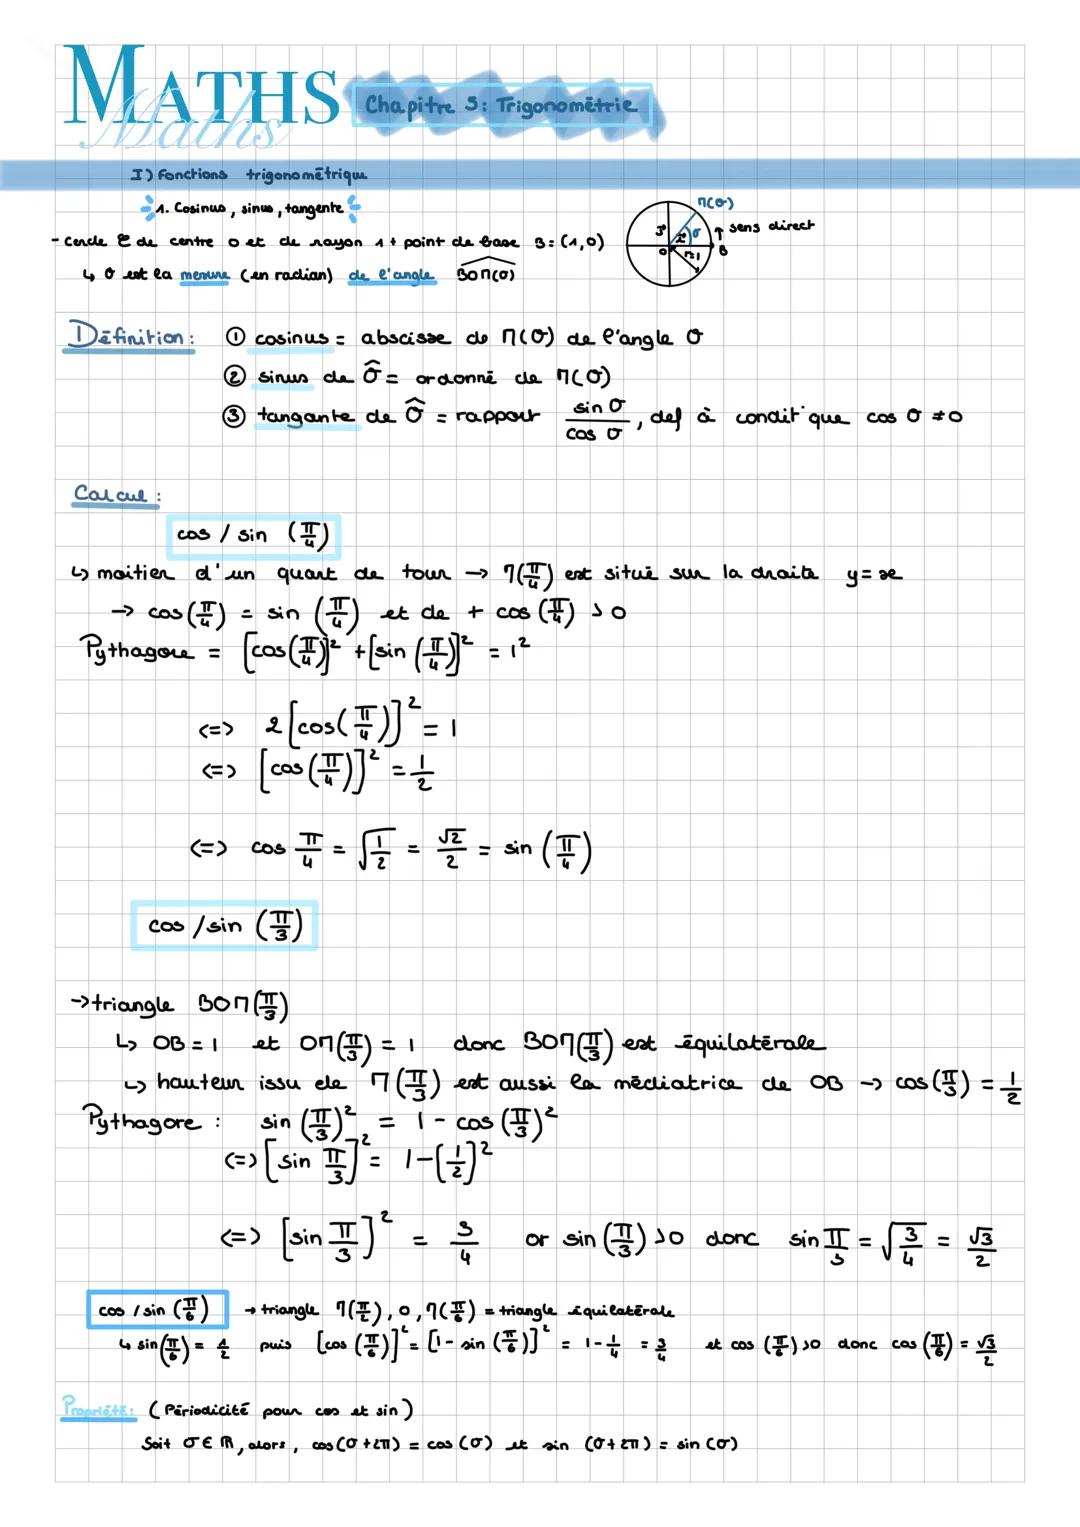 MATHS
Maths
Chapitre 5: Trigonométrie
I) Fonctions trigonométrique
1. Cosinus, sinus, tangente
- Cercle C de centre o et de rayon 1 + point de base B = (1,0)
↳ θ est la mesure (en radian) de l'angle BOM(θ)
M(θ)
sens direct
θ
J
i
O
r=1
B
Définition: ① cosinus = abscisse de M(θ) de l'angle θ
② sinus de θ̂ = ordonné de M(θ)
③ tangante de θ̂ = rapport sin θ / cos θ, def à condit° que cos θ ≠ 0
Calcul:
cos / sin (π/4)
↳ moitier d'un quart de tour → M(π/4) est situé sur la droite y = x
→ cos(π/4) = sin (π/4) et de + cos (π/4) > 0
Pythagore = [cos(π/4)]² + [sin (π/4)]² = 1²
<=> 2[cos(π/4)]² = 1
<=> [cos(π/4)]² = 1/2
<=> cos π/4 = √(1/2) = √2/2 = sin (π/4)
cos / sin (π/3)
→ triangle BOM(π/3)
↳ OB = 1 et OM(π/3) = 1 donc BOM(π/3) est équilatérale
↳ hauteur issu de M(π/3) est aussi la médiatrice de OB → cos(π/3) = 1/2
Pythagore : sin (π/3)² = 1 - cos (π/3)²
<=> [sin π/3]² = 1-(1/2)²
<=> [sin π/3]² = 3/4 or sin (π/3) > 0 donc sin π/3 = √(3/4) = √3/2
cos / sin (π/6) → triangle M(π/2), O, M(π/6) = triangle équilatérale
↳ sin(π/6) = 1/2 puis [cos (π/6)]² = [1 - sin (π/6)]² = 1 - 1/4 = 3/4 et cos (π/6) > 0 donc cos (π/6) = √3/2
Propriété: (Périodicité pour cos et sin)
Soit θ ∈ ℝ, alors, cos(θ + 2π) = cos (θ) et sin (θ + 2π) = sin (θ)